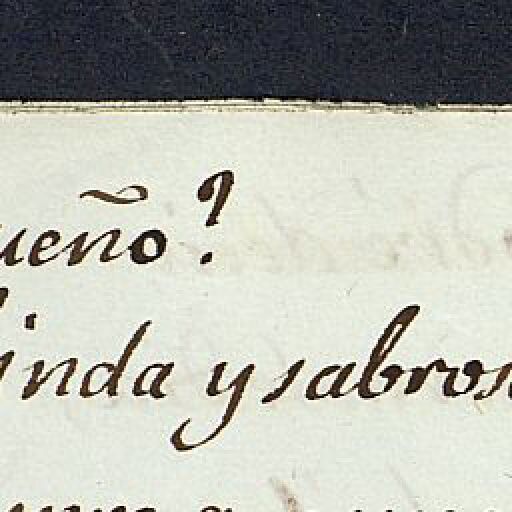 ueño?
linda y sabros